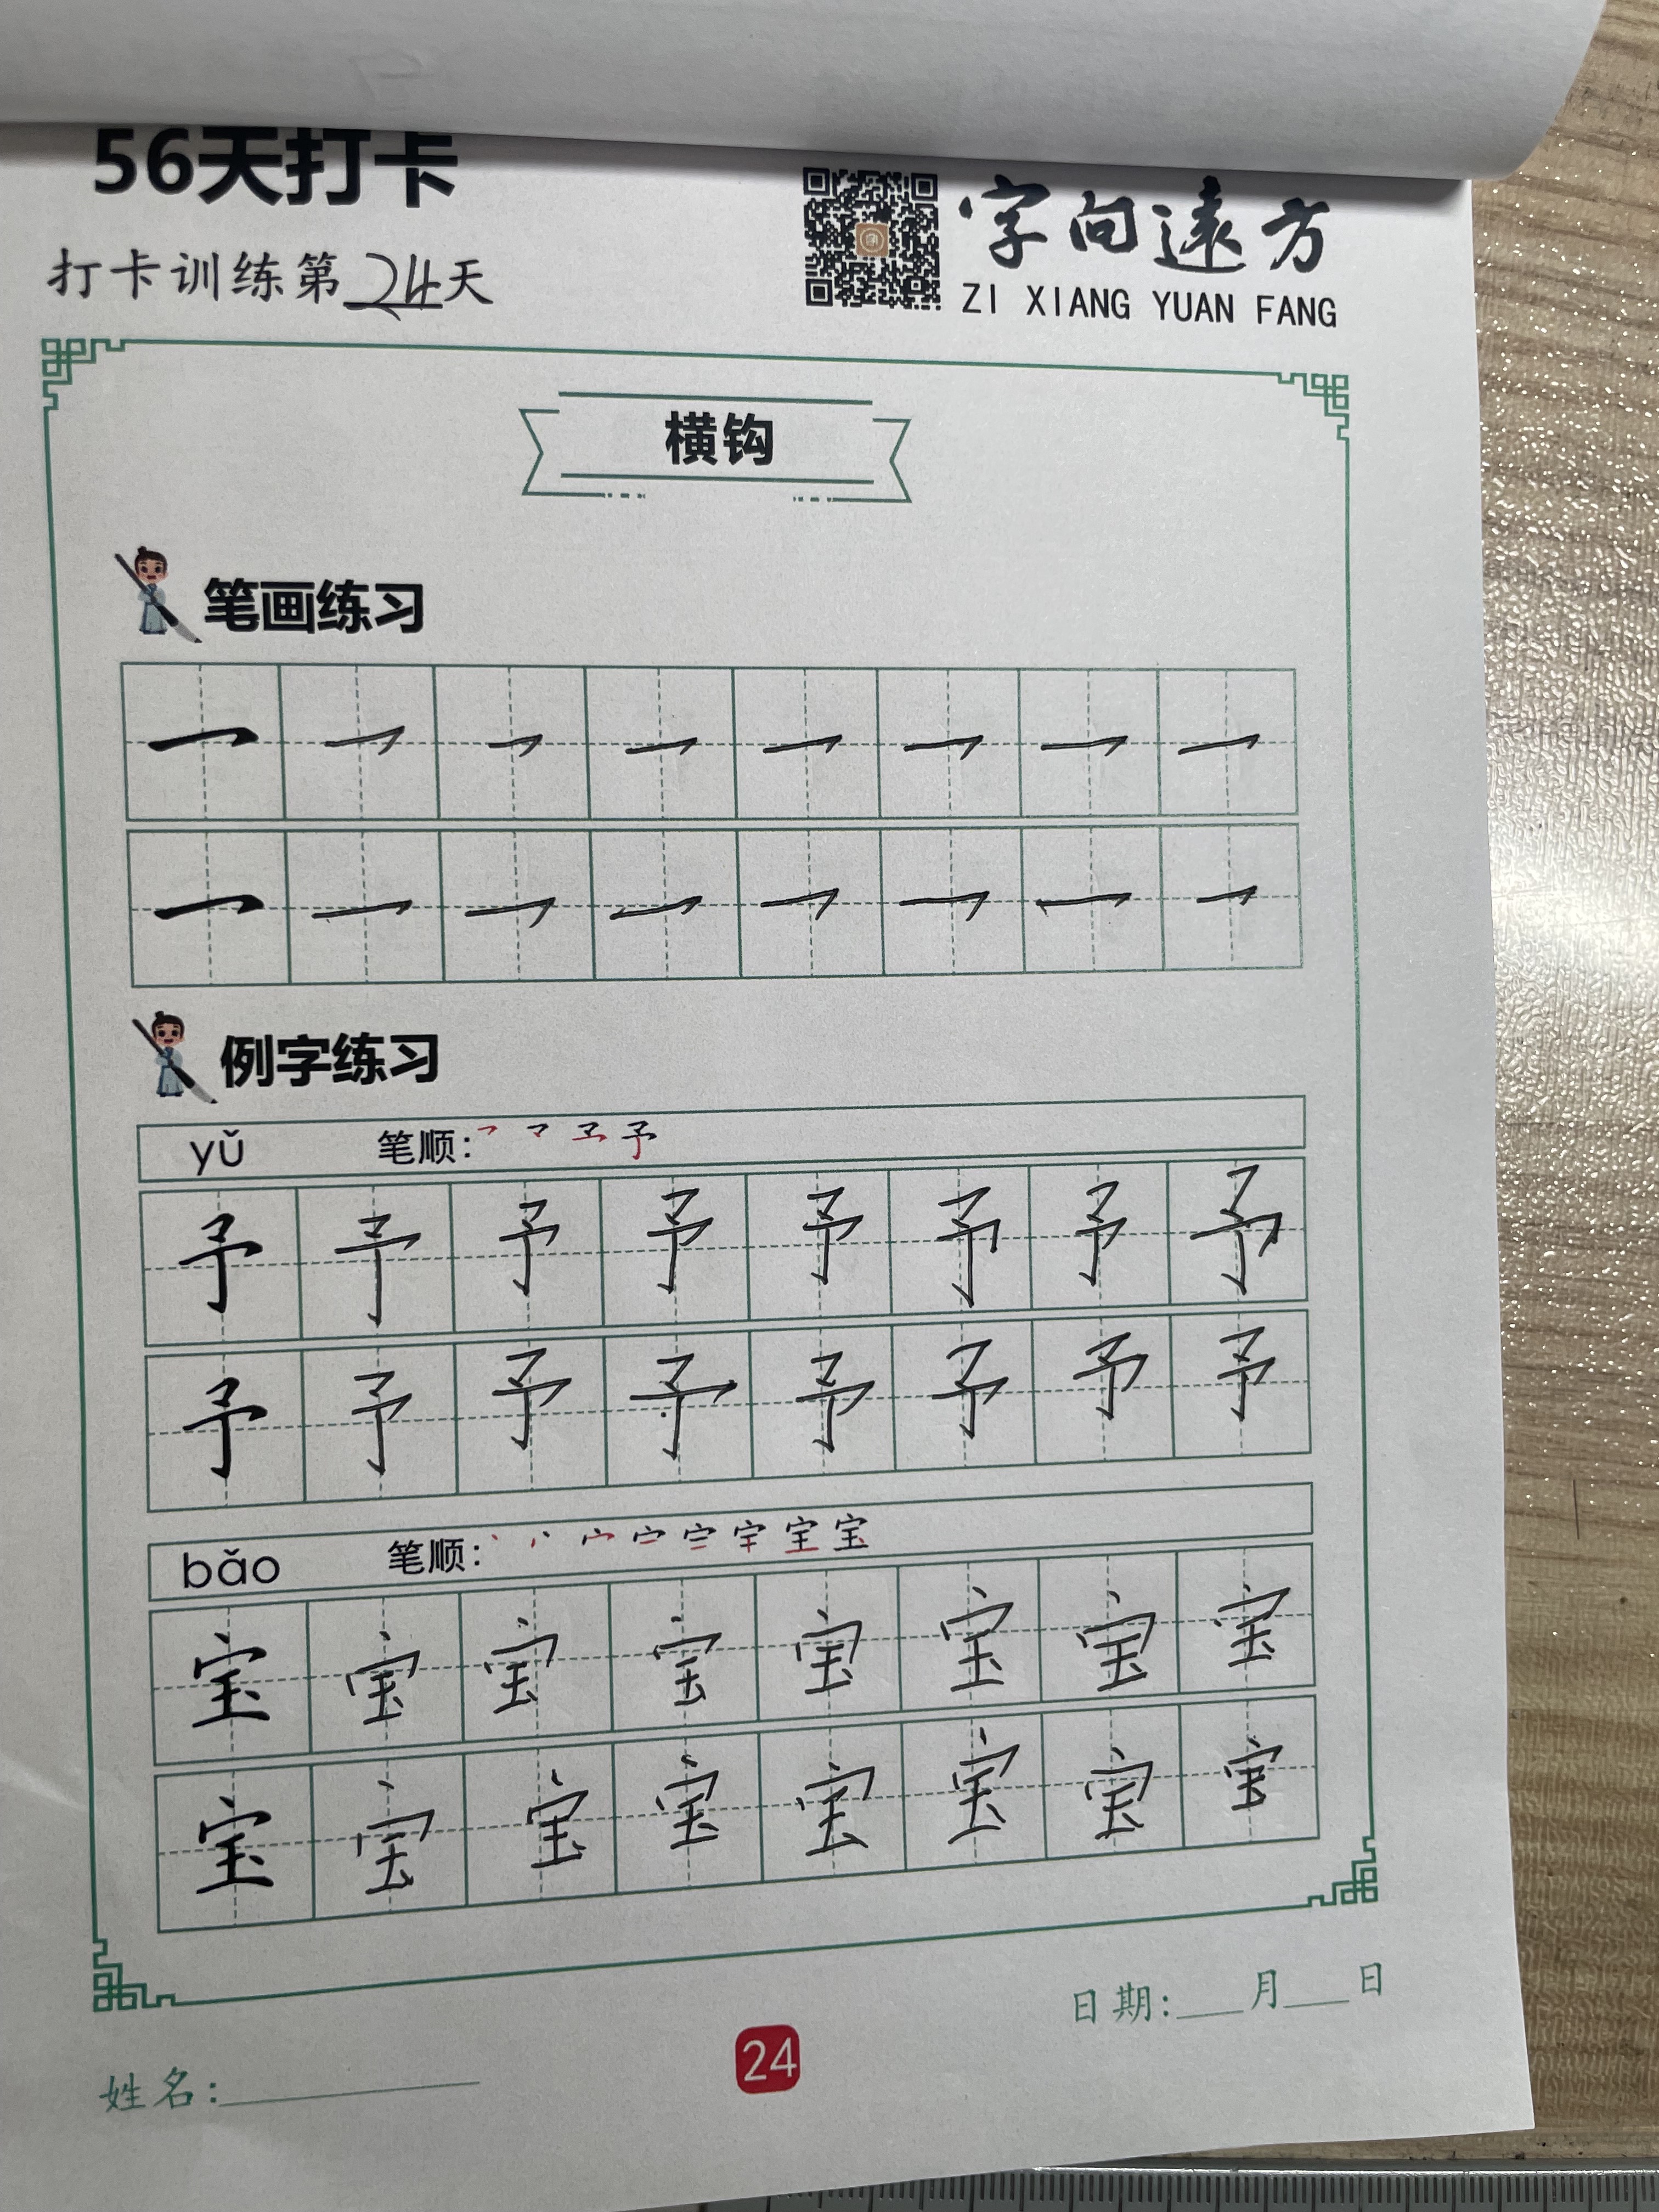 56天打卡
字向遠方
打卡训练第24天
ZI XIANG YUAN FANG
横钩
笔画练习
例字练习
yǔ 笔顺:
予 予 予 予 予 予 予 予
予 予 予 予 予 予 予 予
bǎo 笔顺:
宝 宝 宝 宝 宝 宝 宝 宝
宝 宝 宝 宝 宝 宝 宝 宝
日期:___月___日
24
姓名: